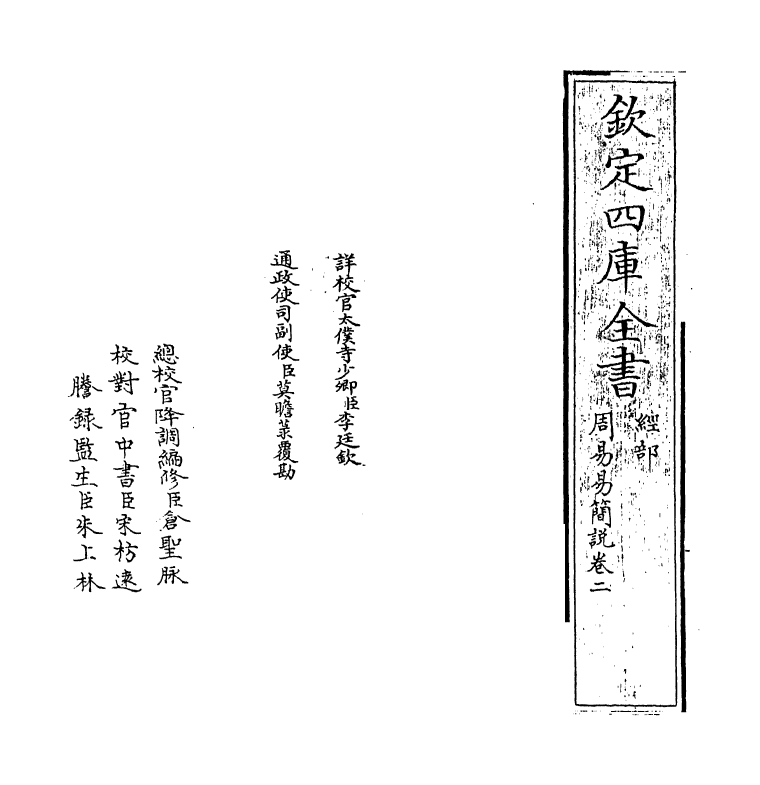 欽定四庫全書
經部
周易易簡説卷二
詳校官太僕寺少卿臣李廷欽
通政使司副使臣莫瞻菉覆勘
總校官降調編修臣倉聖脉
校對官中書臣宋枋遠
謄録監生臣朱上林